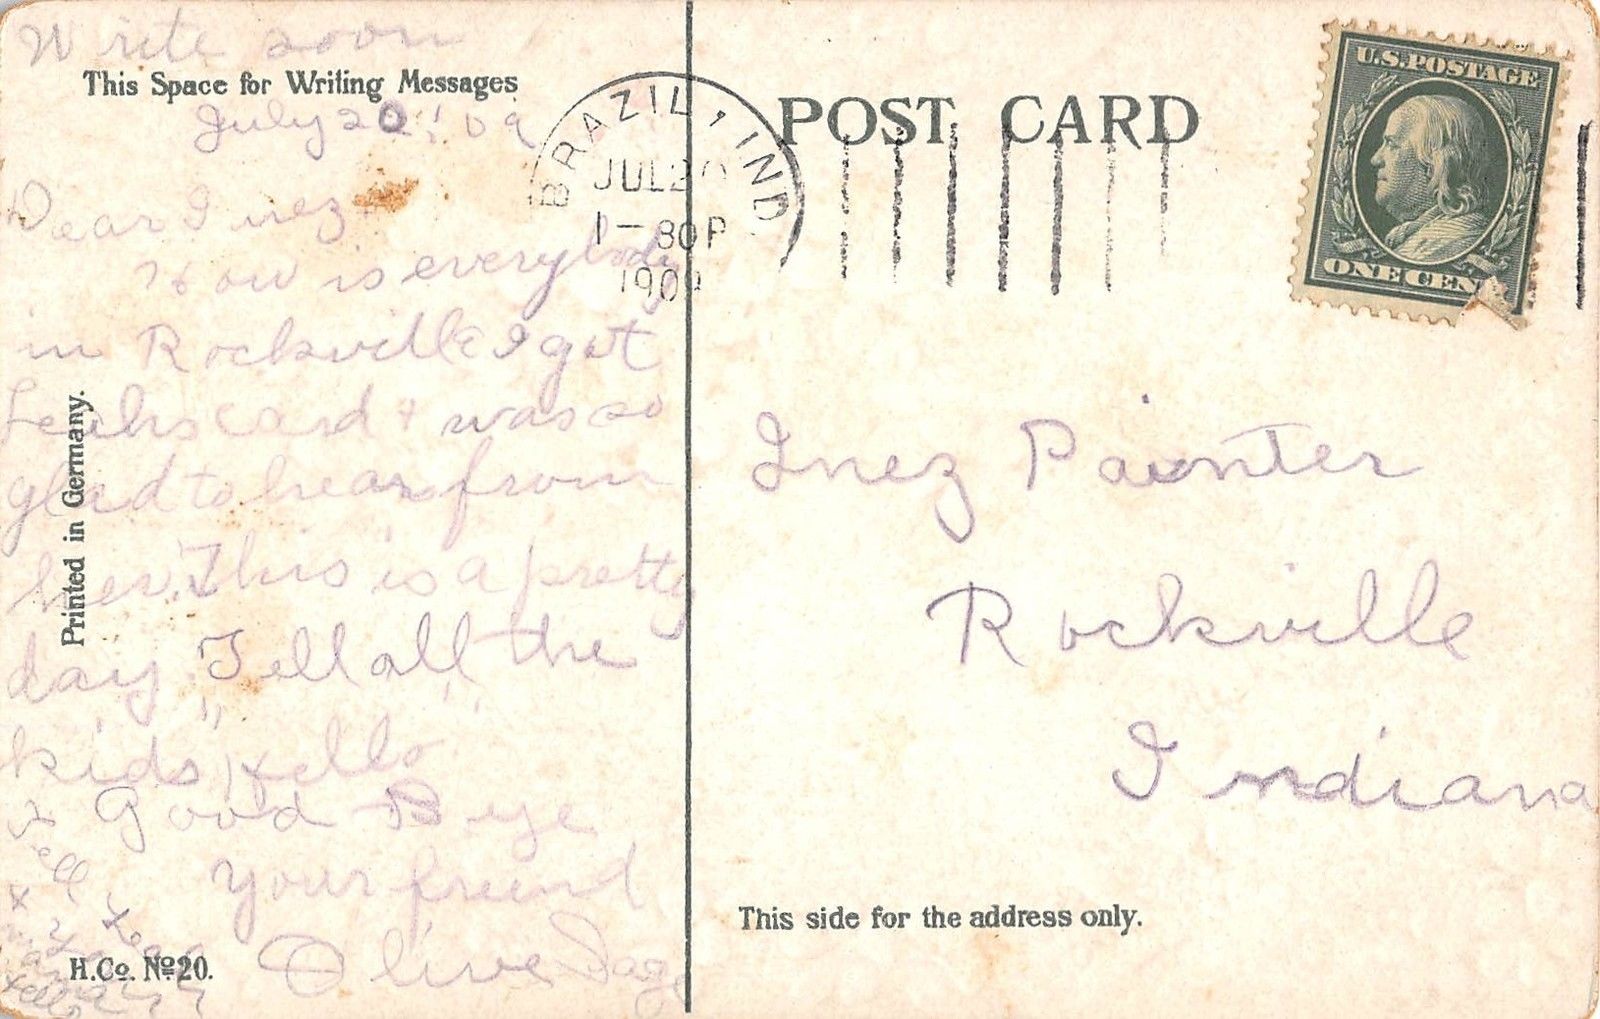 Write soon
This Space for Writing Messages
July 20, '09
Dear Inez,
How is everybody
in Rockville I got
Leahs card + was so
glad to hear from
her. This is a pretty
day. Tell all the
kids "Hello"
+ Good Bye
Your friend
Olive Sage
Tell
Hello
Printed in Germany.
H.Co. No 20.
BRAZIL, IND
JUL 20
1-30P
1909
POST CARD
U.S. POSTAGE
ONE CENT
Inez Painter
Rockville
Indiana
This side for the address only.